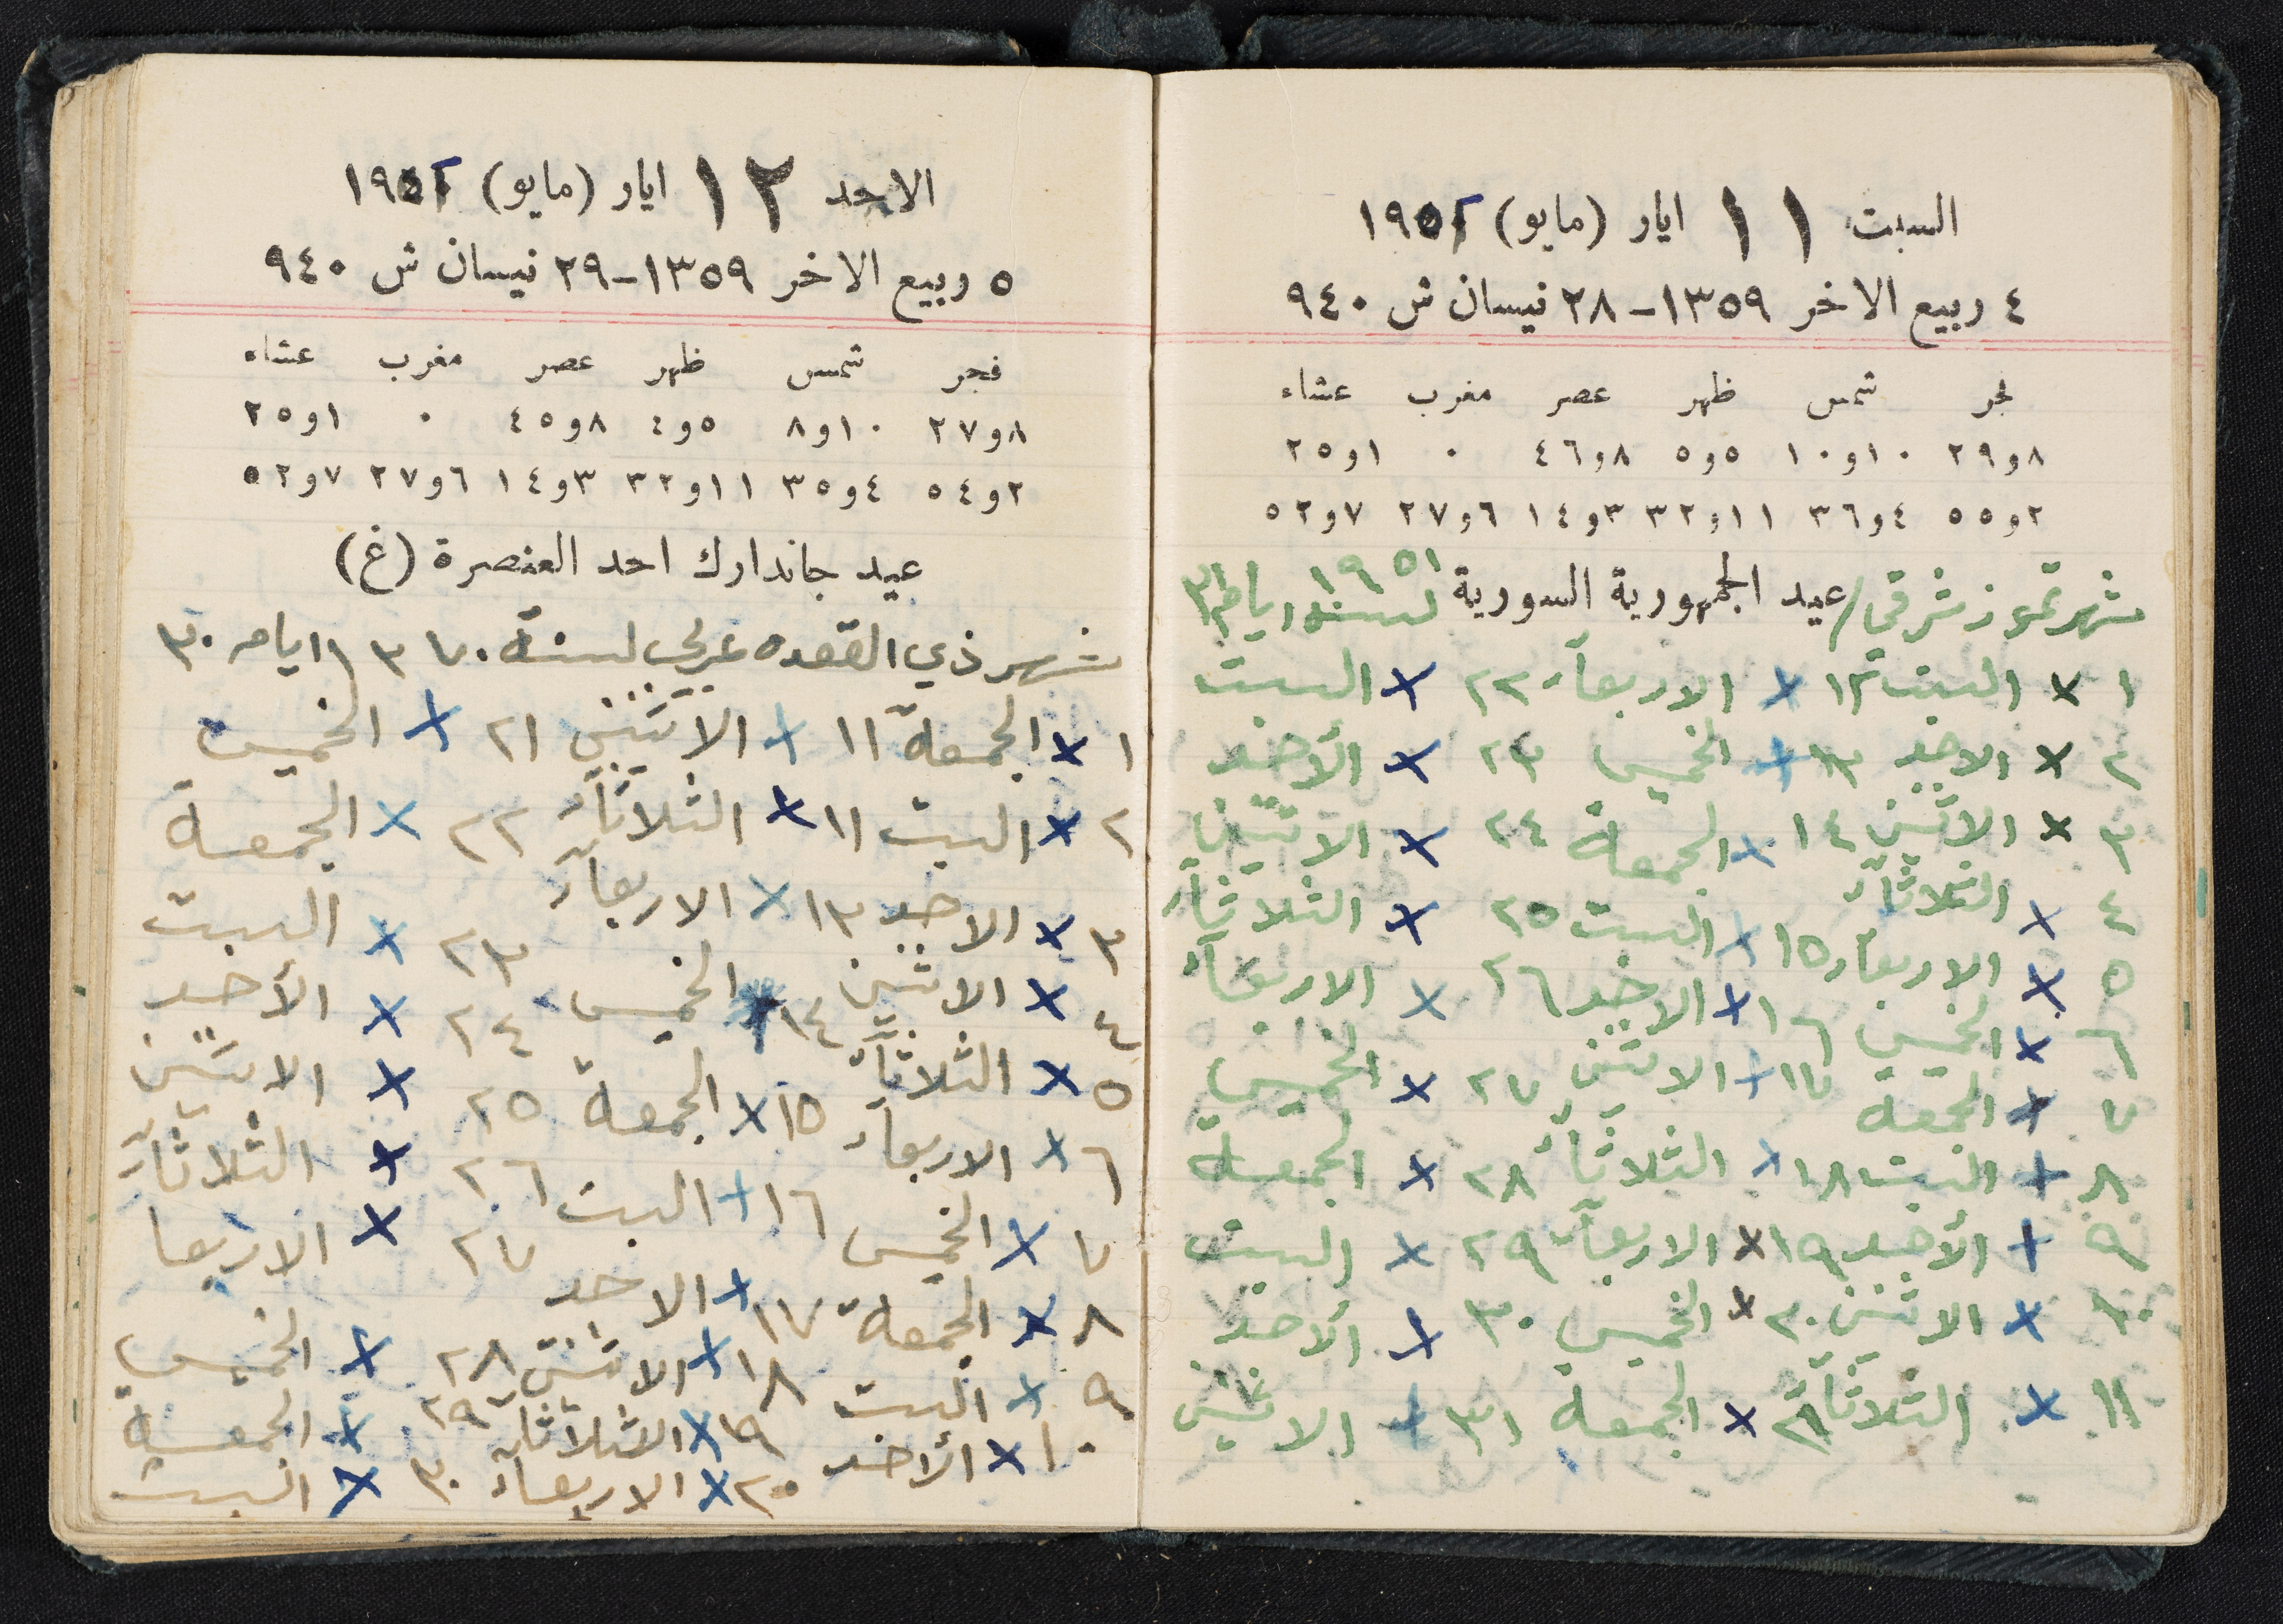 السبت ١١ ايار (مايو) ١٩٥٢
٤ ربيع الاخر ١٣٥٩ - ٢٨ نيسان ش ٩٤٠
فجر شمس ظهر عصر مغرب عشاء
٨و٢٩ ١٠و١٠ ٥و٥ ٨و٤٦ ٠ ١و٢٥
٢و٥٥ ٤و٣٦ ١١و٣٢ ٣و١٤ ٦و٢٧ ٧و٥٢
شهر تموز شرقي / عيد الجمهورية السورية لسنة ١٩٥١ ايامه ٣١
١ × السبت ١٢ × الاربعاء ٢٢ × السبت
٢ × الاحد ١٣ × الخميس ٢٣ × الأحد
٣ × الاثنين ١٤ × الجمعة ٢٤ × الاثنين
٤ × الثلاثاء ١٥ × السبت ٢٥ × الثلاثاء
٥ × الاربعاء ١٦ × الاحد ٢٦ × الاربعاء
٦ × الخميس ١٧ + الاثنين ٢٧ × الخميس
٧ × الجمعة ١٨ × الثلاثاء ٢٨ × الجمعة
٨ + السبت ١٩ × الاربعاء ٢٩ × السبت
٩ + الأحد ٢٠ × الخميس ٣٠ × الأحد
١٠ × الاثنين ٢١ × الجمعة ٣١ + الاثنين
١١ × الثلاثاء
الاحد ١٢ ايار (مايو) ١٩٥٢
٥ ربيع الاخر ١٣٥٩ - ٢٩ نيسان ش ٩٤٠
فجر شمس ظهر عصر مغرب عشاء
٨و٢٧ ١٠و٨ ٥و٤ ٨و٤٥ ٠ ١و٢٥
٢و٥٤ ٤و٣٥ ١١و٣٢ ٣و١٤ ٦و٢٧ ٧و٥٢
عيد جاندارك احد العنصرة (غ)
شهر ذي القعده عربي لسنة ١٣٧٠ ايامه ٣٠
١ × الجمعة ١١ + الاثنين ٢١ × الخميس
٢ × السبت ١١ × الثلاثاء ٢٢ × الجمعة
٣ × الاحد ١٣ × الاربعاء ٢٣ × السبت
٤ × الاثنين ١٤ × الخميس ٢٤ × الأحد
٥ × الثلاثاء ١٥ × الجمعة ٢٥ × الاثنين
٦ × الاربعاء ١٦ + السبت ٢٦ × الثلاثاء
٧ × الخميس ١٧ + الاحد ٢٧ × الاربعا
٨ × الجمعة ١٨ × الاثنين ٢٨ × الخميس
٩ × السبت ١٩ × الثلاثاء ٢٩ × الجمعة
١٠ × الأحد ٢٠ × الاربعاء ٣٠ × السبت